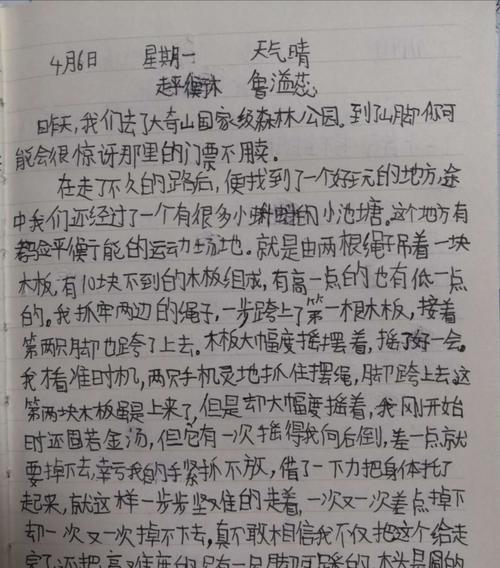 4月6日 星期一 天气晴
走平衡木 鲁溢蕊
昨天,我们去了大奇山国家级森林公园。到了山脚你可
能会很惊讶那里的门票不用卖。
在走了不久的路后,便找到了一个好玩的地方,途
中我们还经过了一个有很多小蝌蚪的小池塘。这个地方有
考验平衡于能的运动场地。就是由两根绳子吊着一块
木板,有10块不到的木板组成,有高一点的也有低一点
的。我抓牢两边的绳子,一步跨上了第一根木板,接着
第两只脚也跨了上去。木板大幅度摇摆着,摇了好一会。
我看准时机,两只手机灵地抓住摆绳,脚跨上去,这
第两块木板虽是上来了,但是却大幅度摇着,我刚开始
时还固若金汤,但它有一次摇得我向后倒,差一点就
要掉下去,幸亏我的手紧抓不放,借了一下力把身体托了
起来,就这样一步步坚难的走着,一次又一次差点掉下
却一次又一次掉不下去,真不敢相信我不仅把这个给走
完了还把高难度的只有一只脚可踩的,木头是圆的